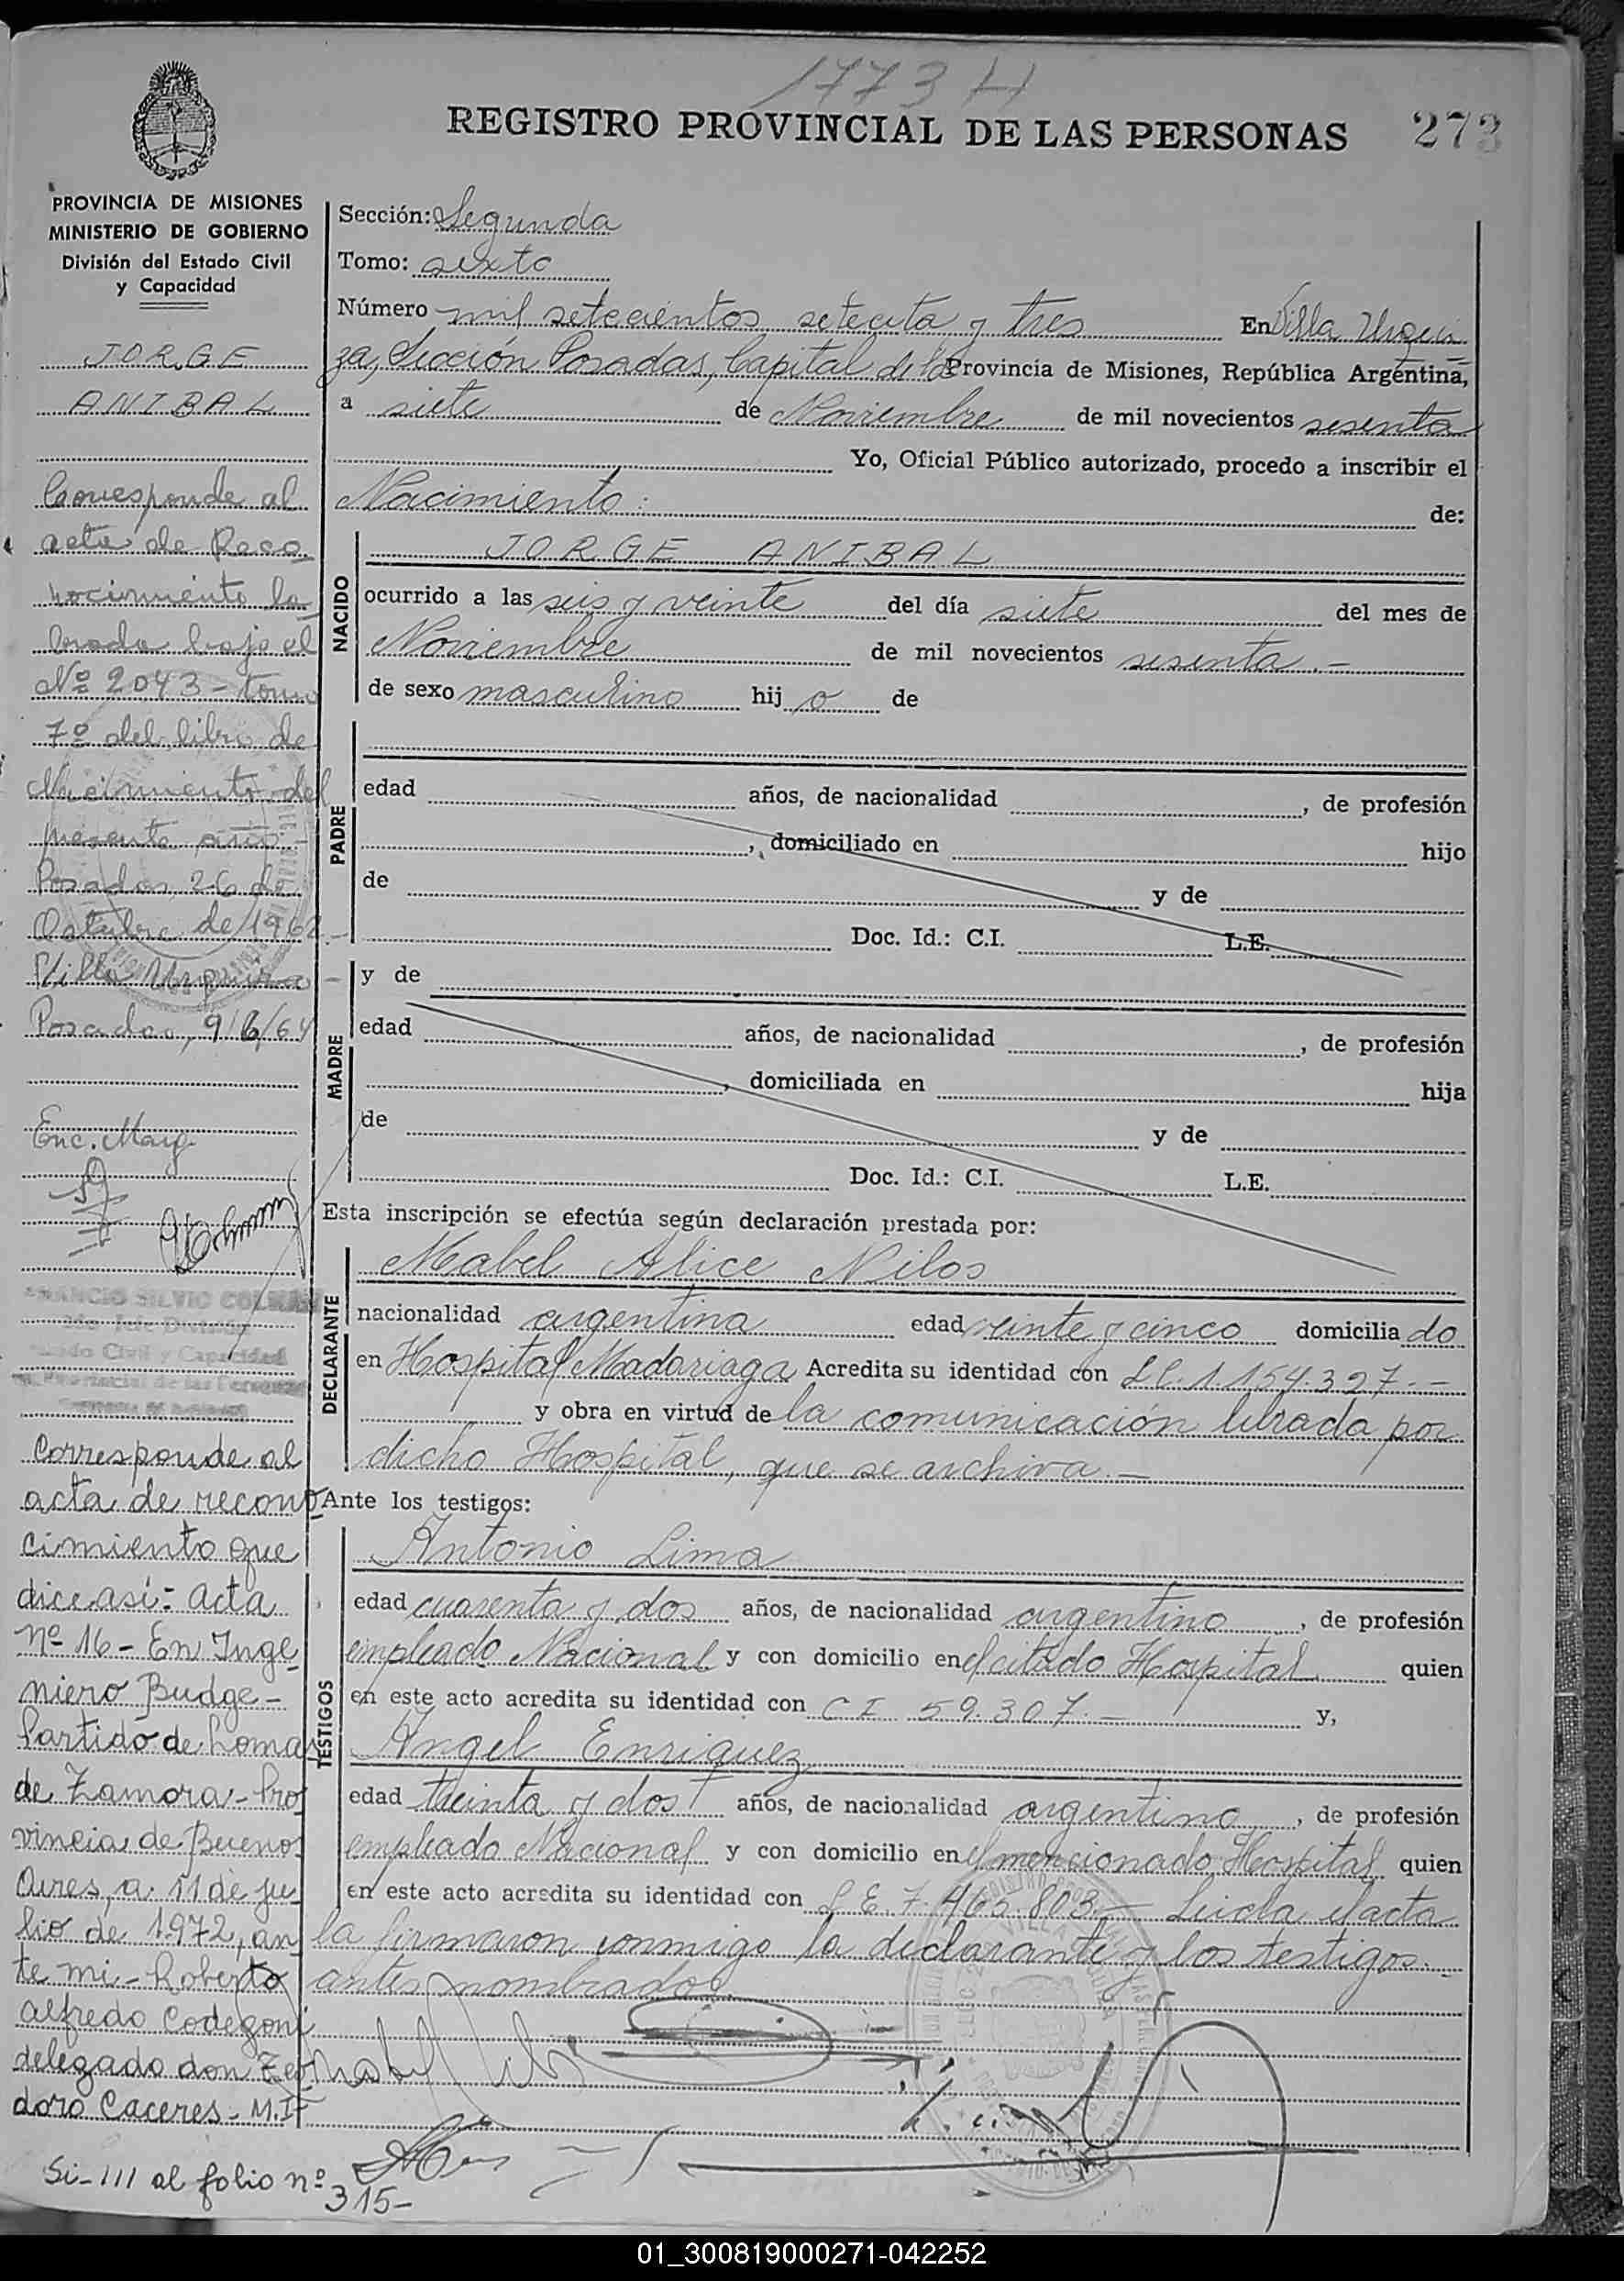 1773 H
REGISTRO PROVINCIAL DE LAS PERSONAS
273
PROVINCIA DE MISIONES
MINISTERIO DE GOBIERNO
División del Estado Civil
y Capacidad
JORGE
ANIBAL
Corresponde al
acta de Reco-
nocimiento la-
brada bajo el
Nº 2043 - tomo
7º del libro de
Nacimiento del
presente año -
Posadas, 26 de
Octubre de 1962.-
Villa Urquiza -
Posadas, 9/6/64
Enc. Marg.
Corresponde al
acta de recono-
cimiento que
dice así:- Acta
nº 16 - En Inge-
niero Budge -
Partido de Lomas
de Zamora - Pro-
vincia de Buenos
Aires, a 11 de ju-
lio de 1972, an-
te mi - Roberto
Alfredo Codegoni
delegado don Teo-
doro Caceres - M.I-
Si - III al folio nº
315-
Sección: Segunda
Tomo: sexto
Número mil setecientos setecita y tres En Villa Urqui-
za, Sección Posadas, Capital de la Provincia de Misiones, República Argentina,
a siete de Noviembre de mil novecientos sesenta
Yo, Oficial Público autorizado, procedo a inscribir el
Nacimiento: de:
NACIDO
JORGE ANIBAL
ocurrido a las seis y veinte del día siete del mes de
Noviembre de mil novecientos sesenta.-
de sexo masculino hij o de
PADRE
edad años, de nacionalidad , de profesión
, domiciliado en hijo
de y de
Doc. Id.: C.I. L.E.
MADRE
y de
edad años, de nacionalidad , de profesión
, domiciliada en hija
de y de
Doc. Id.: C.I. L.E.
Esta inscripción se efectúa según declaración prestada por:
DECLARANTE
Mabel Alice Nilos
nacionalidad argentina edad veinte y cinco domicilia do
en Hospital Madariaga Acredita su identidad con LC. 1.154.327.-
y obra en virtud de la comunicación librada por
dicho Hospital, que se archiva.-
Ante los testigos:
TESTIGOS
Antonio Lima
edad cuarenta y dos años, de nacionalidad argentino , de profesión
empleado Nacional y con domicilio en el citado Hospital quien
en este acto acredita su identidad con CI 59.307.- y,
Angel Enriquez
edad treinta y dos años, de nacionalidad argentino , de profesión
empleado Nacional y con domicilio en el mencionado Hospital quien
en este acto acredita su identidad con L E. 7.465.803.- Leída el acta
la firmaron conmigo la declarante y los testigos.-
antes nombrados.
01_300819000271-042252